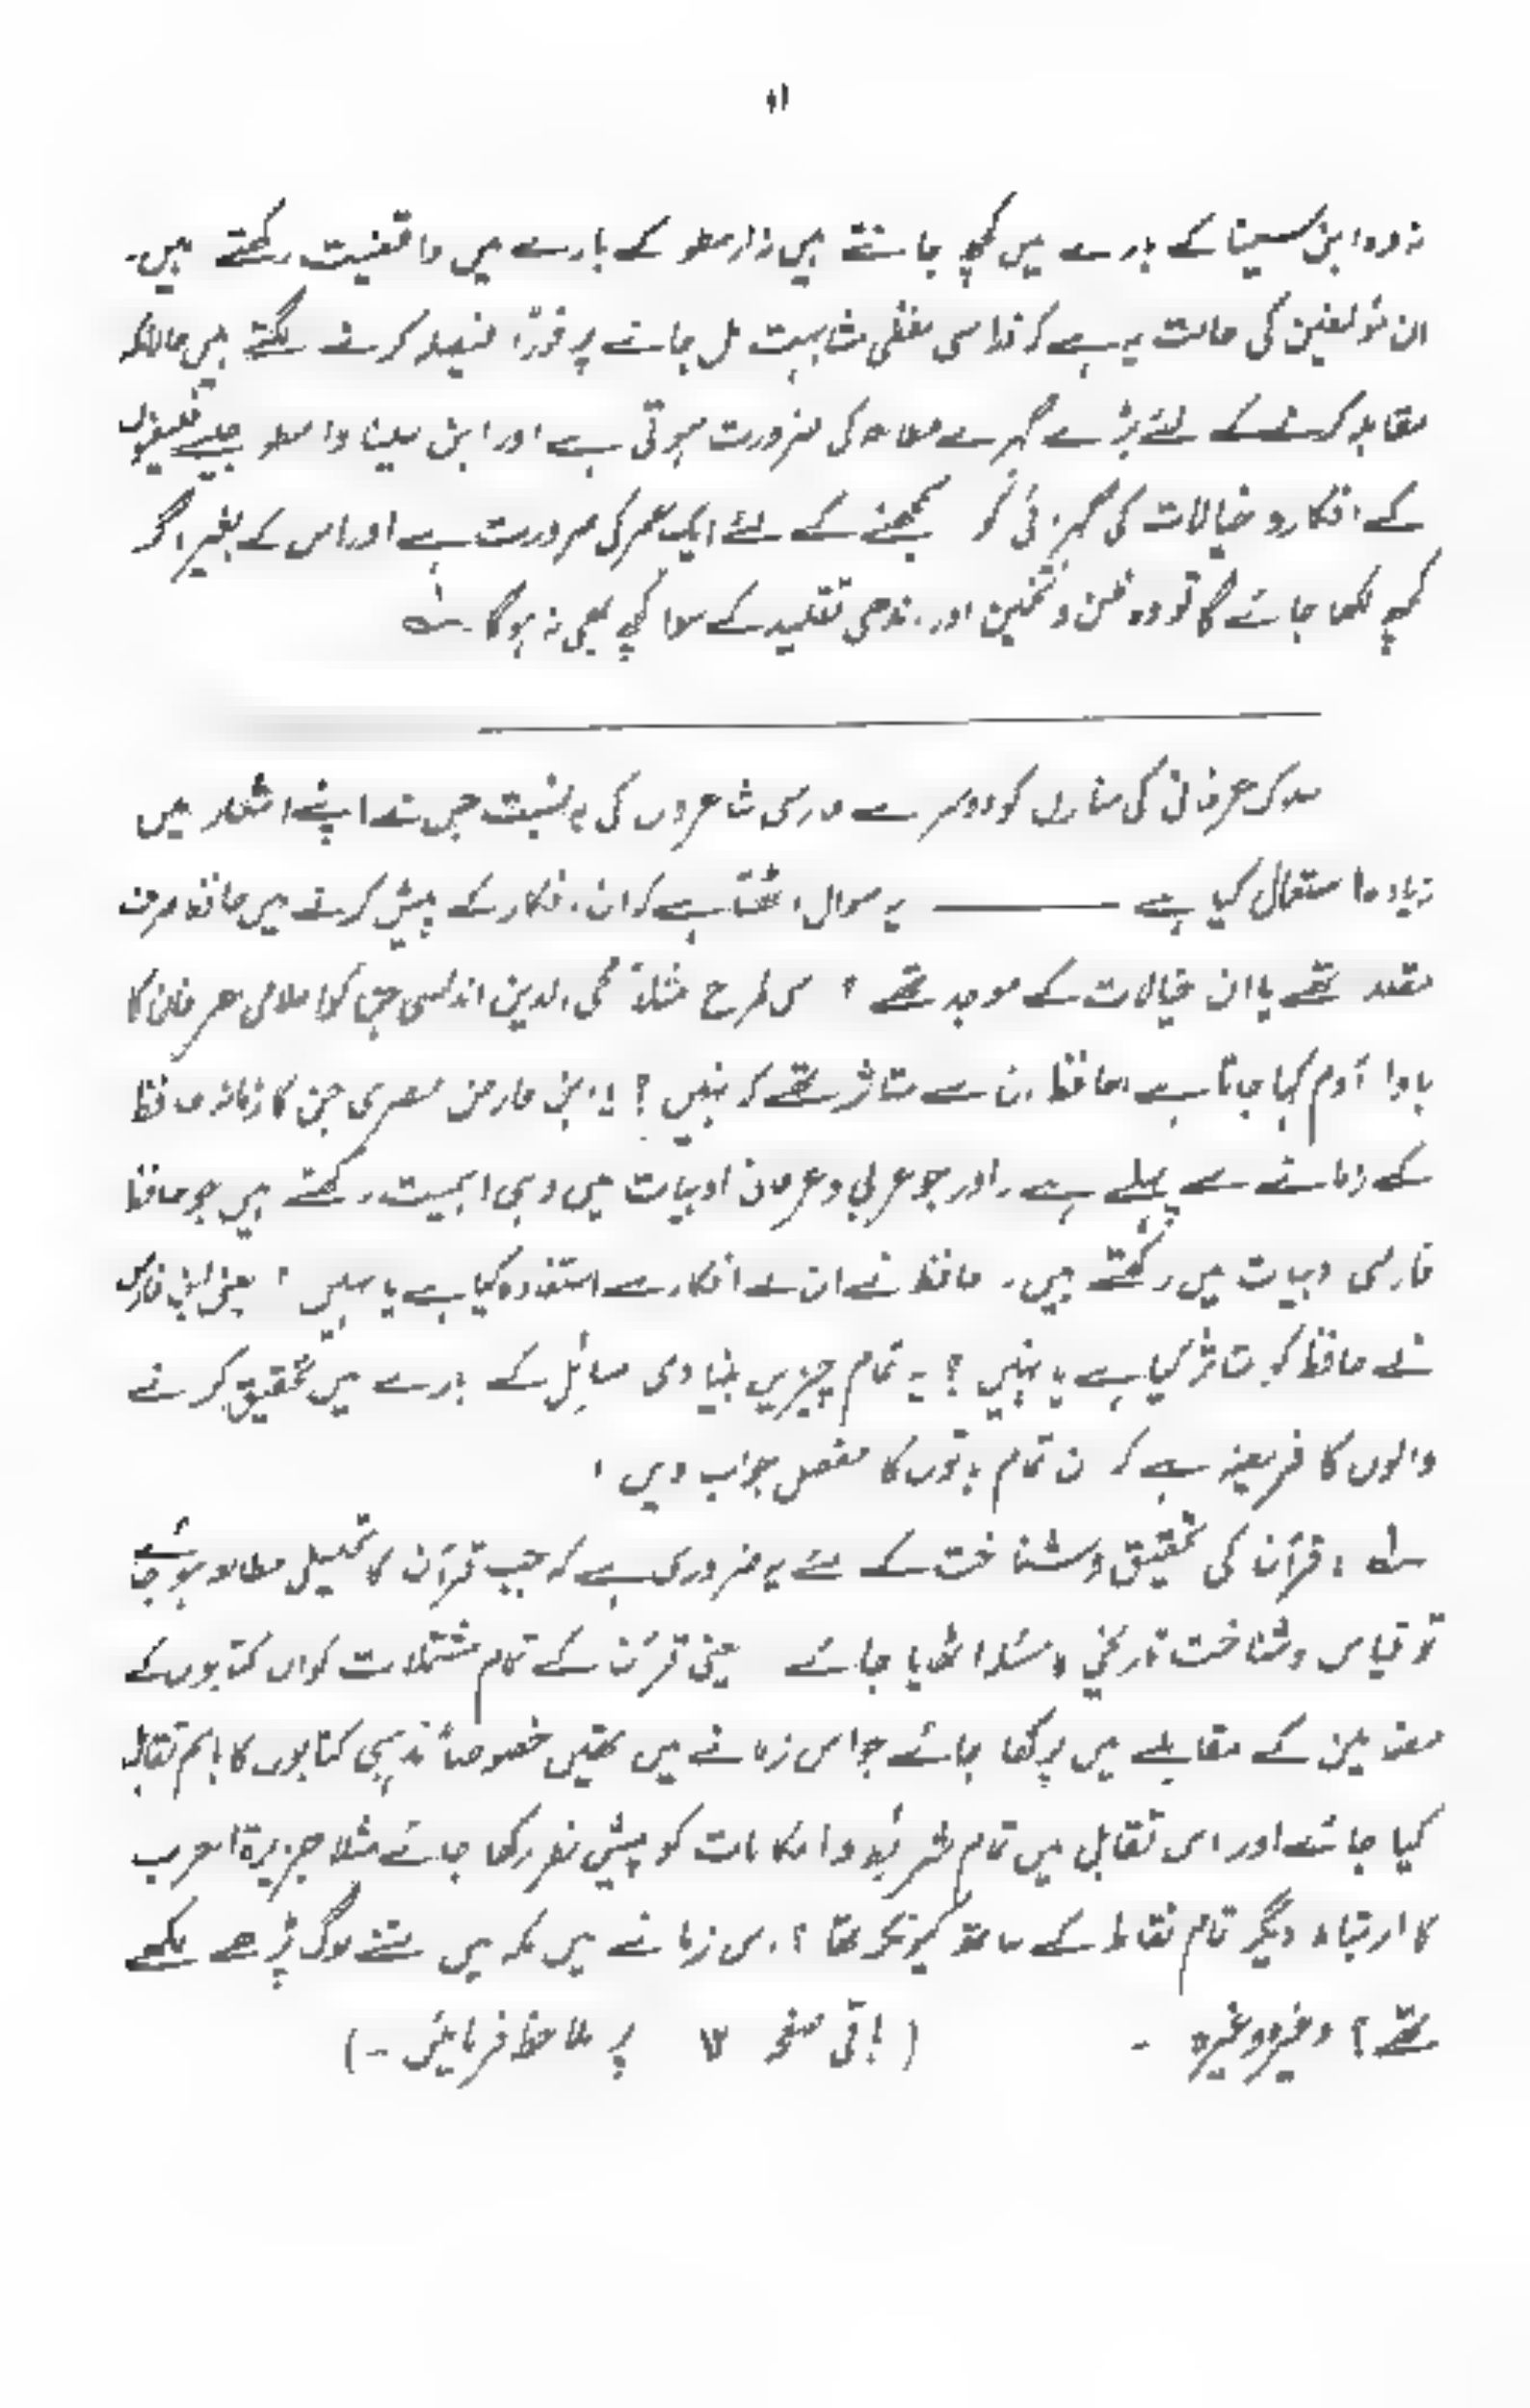 ۱۵
نہ وہ ابن سینا کے بارے میں کچھ جانتے ہیں نہ ارسطو کے بارے میں واقفیت رکھتے ہیں۔
ان مؤلفین کی حالت یہ ہے کہ ذرا سی لفظی مشابہت مل جانے پر فوراً فیصلہ کرنے لگتے ہیں حالانکہ
مقابلہ کرنے کے لئے بڑے گہرے مطالعہ کی ضرورت ہوتی ہے اور ابن سینا و ارسطو جیسے فلسفیوں
کے افکار و خیالات کی گہرائی کو سمجھنے کے لئے ایک عمر کی ضرورت ہے اور اس کے بغیر اگر
کچھ لکھا جائے گا تو وہ ظن و تخمین اور اندھی تقلید کے سوا کچھ بھی نہ ہوگا ۔
عرفانی کی منازل کو دوسرے فارسی شاعروں کی بہ نسبت جس نے اپنے اشعار میں
زیادہ استعمال کیا ہے ——— یہ سوال اٹھتا ہے کہ ان افکار کے پیش کرنے میں حافظ صرف
مقلد تھے یا ان خیالات کے موجد تھے ؟ اسی طرح مثلاً محی الدین اندلسی جن کو اسلامی عرفان کا
باوا آدم کہا جاتا ہے حافظ ان سے متاثر تھے کہ نہیں ؟ یا ابن فارض مصری جن کا زمانہ حافظ
کے زمانے سے پہلے ہے اور جو عربی و عرفانی ادبیات میں وہی اہمیت رکھتے ہیں جو حافظ
فارسی ادبیات میں رکھتے ہیں ۔ حافظ نے ان کے افکار سے استفادہ کیا ہے یا نہیں ؟ یعنی ابن فارض
نے حافظ کو متاثر کیا ہے یا نہیں ؟ یہ تمام چیزیں بنیادی مسائل کے بارے میں تحقیق کرنے
والوں کا فریضہ ہے کہ ان تمام باتوں کا مفصل جواب دیں ،
۱ : قرآن کی تحقیق و شناخت کے لئے یہ ضروری ہے کہ جب قرآن کا تحلیلی مطالعہ ہو جائے
تو قیاس و شناخت تاریخی کا مسئلہ اٹھایا جائے یعنی قرآن کے تمام مشتملات کو ان کتابوں کے
مضامین کے مقابلے میں پرکھا جائے جو اس زمانے میں تھیں خصوصاً مذہبی کتابوں کا باہم تقابل
کیا جائے اور اس تقابل میں تمام شرائط و امکانات کو پیش نظر رکھا جائے مثلا جزیرۃ العرب
کا ارتباط دیگر تمام نقاط کے ساتھ کیونکر تھا ؟ اس زمانے میں مکہ میں کتنے لوگ پڑھے لکھے
تھے ؟ وغیرہ وغیرہ ۔ ( باقی صفحہ پر ملاحظہ فرمائیں ۔ )